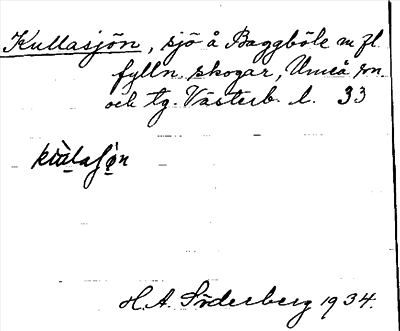 Kullasjön, sjö å Baggböle m fl.
fylln. skogar, Umeå sn.
och tg. Västerb. l. 33
H. A. Söderberg 1934.